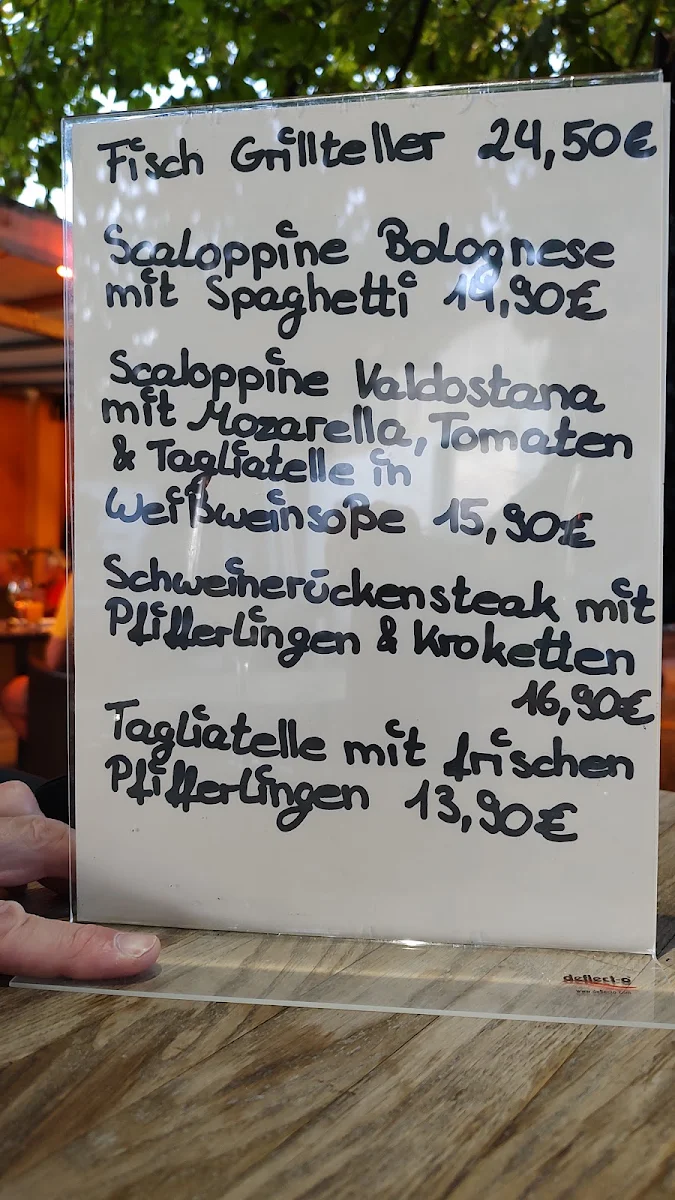 Fisch Grillteller 24,50€
Scaloppine Bolognese
mit Spaghetti 14,90€
Scaloppine Valdostana
mit Mozarella, Tomaten
& Tagliatelle in
Weißweinsoße 15,90€
Schweinerückensteak mit
Pfifferlingen & Kroketten
16,90€
Tagliatelle mit frischen
Pfifferlingen 13,90€